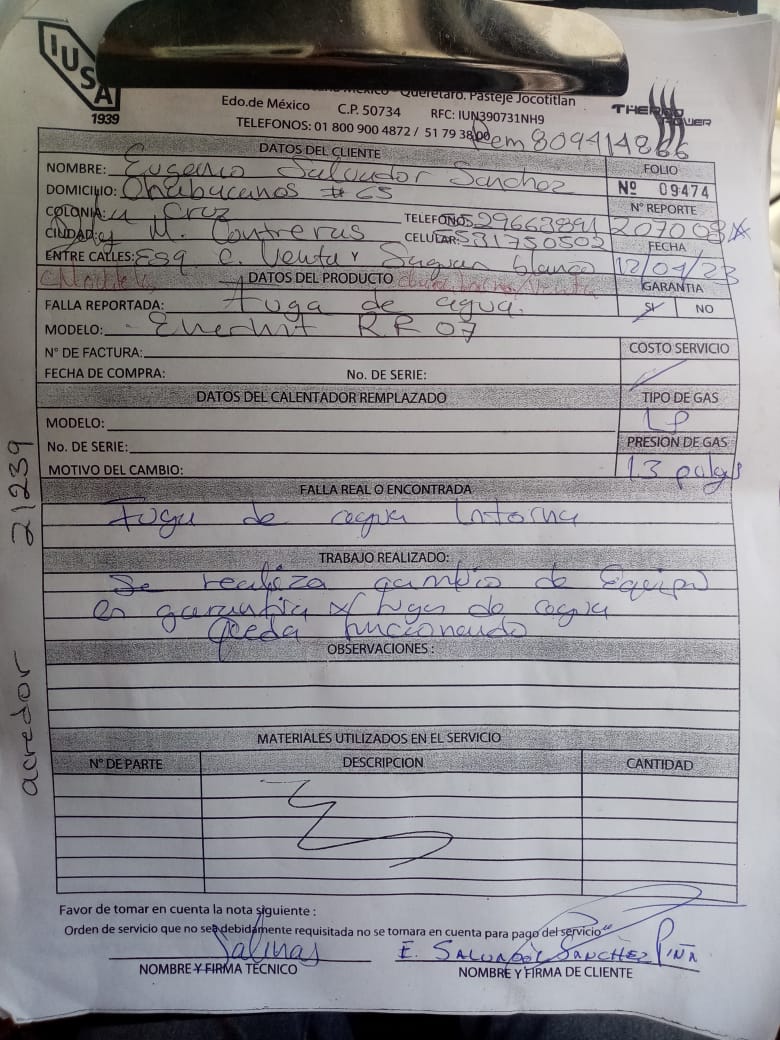 IUSA
1939
México - Querétaro. Pastejé Jocotitlan
Edo.de México C.P. 50734 RFC: IUN390731NH9
TELEFONOS: 01 800 900 4872 / 51 79 3800
THERMO POWER
Rem 809414866
DATOS DEL CLIENTE
FOLIO
NOMBRE: Eugenio Salvador Sanchez
Nº 09474
DOMICILIO: # 65
Nº REPORTE
COLONIA: La Cruz
TELEFONO: 529663891
207008
CIUDAD: M. Contreras
CELULAR: 5531750502
FECHA
ENTRE CALLES: Esq c. Venta y blanco
12/01/23
DATOS DEL PRODUCTO
GARANTIA
FALLA REPORTADA: Fuga de agua.
SI NO
MODELO: RR 07
Nº DE FACTURA:
COSTO SERVICIO
FECHA DE COMPRA: No. DE SERIE:
DATOS DEL CALENTADOR REMPLAZADO
TIPO DE GAS
MODELO:
LP
No. DE SERIE:
PRESION DE GAS
MOTIVO DEL CAMBIO:
13 pulgs
FALLA REAL O ENCONTRADA
Fuga de aqua Interna
TRABAJO REALIZADO:
Se realiza cambio de Equipo
en garantia x fugas de aqua
Queda funcionando
OBSERVACIONES :
MATERIALES UTILIZADOS EN EL SERVICIO
Nº DE PARTE DESCRIPCION CANTIDAD
Favor de tomar en cuenta la nota siguiente :
Orden de servicio que no sea debidamente requisitada no se tomara en cuenta para pago del servicio"
Salinas
E. SALVADOR SANCHEZ PIÑA
NOMBRE Y FIRMA TÉCNICO
NOMBRE Y FIRMA DE CLIENTE
acredor 21239